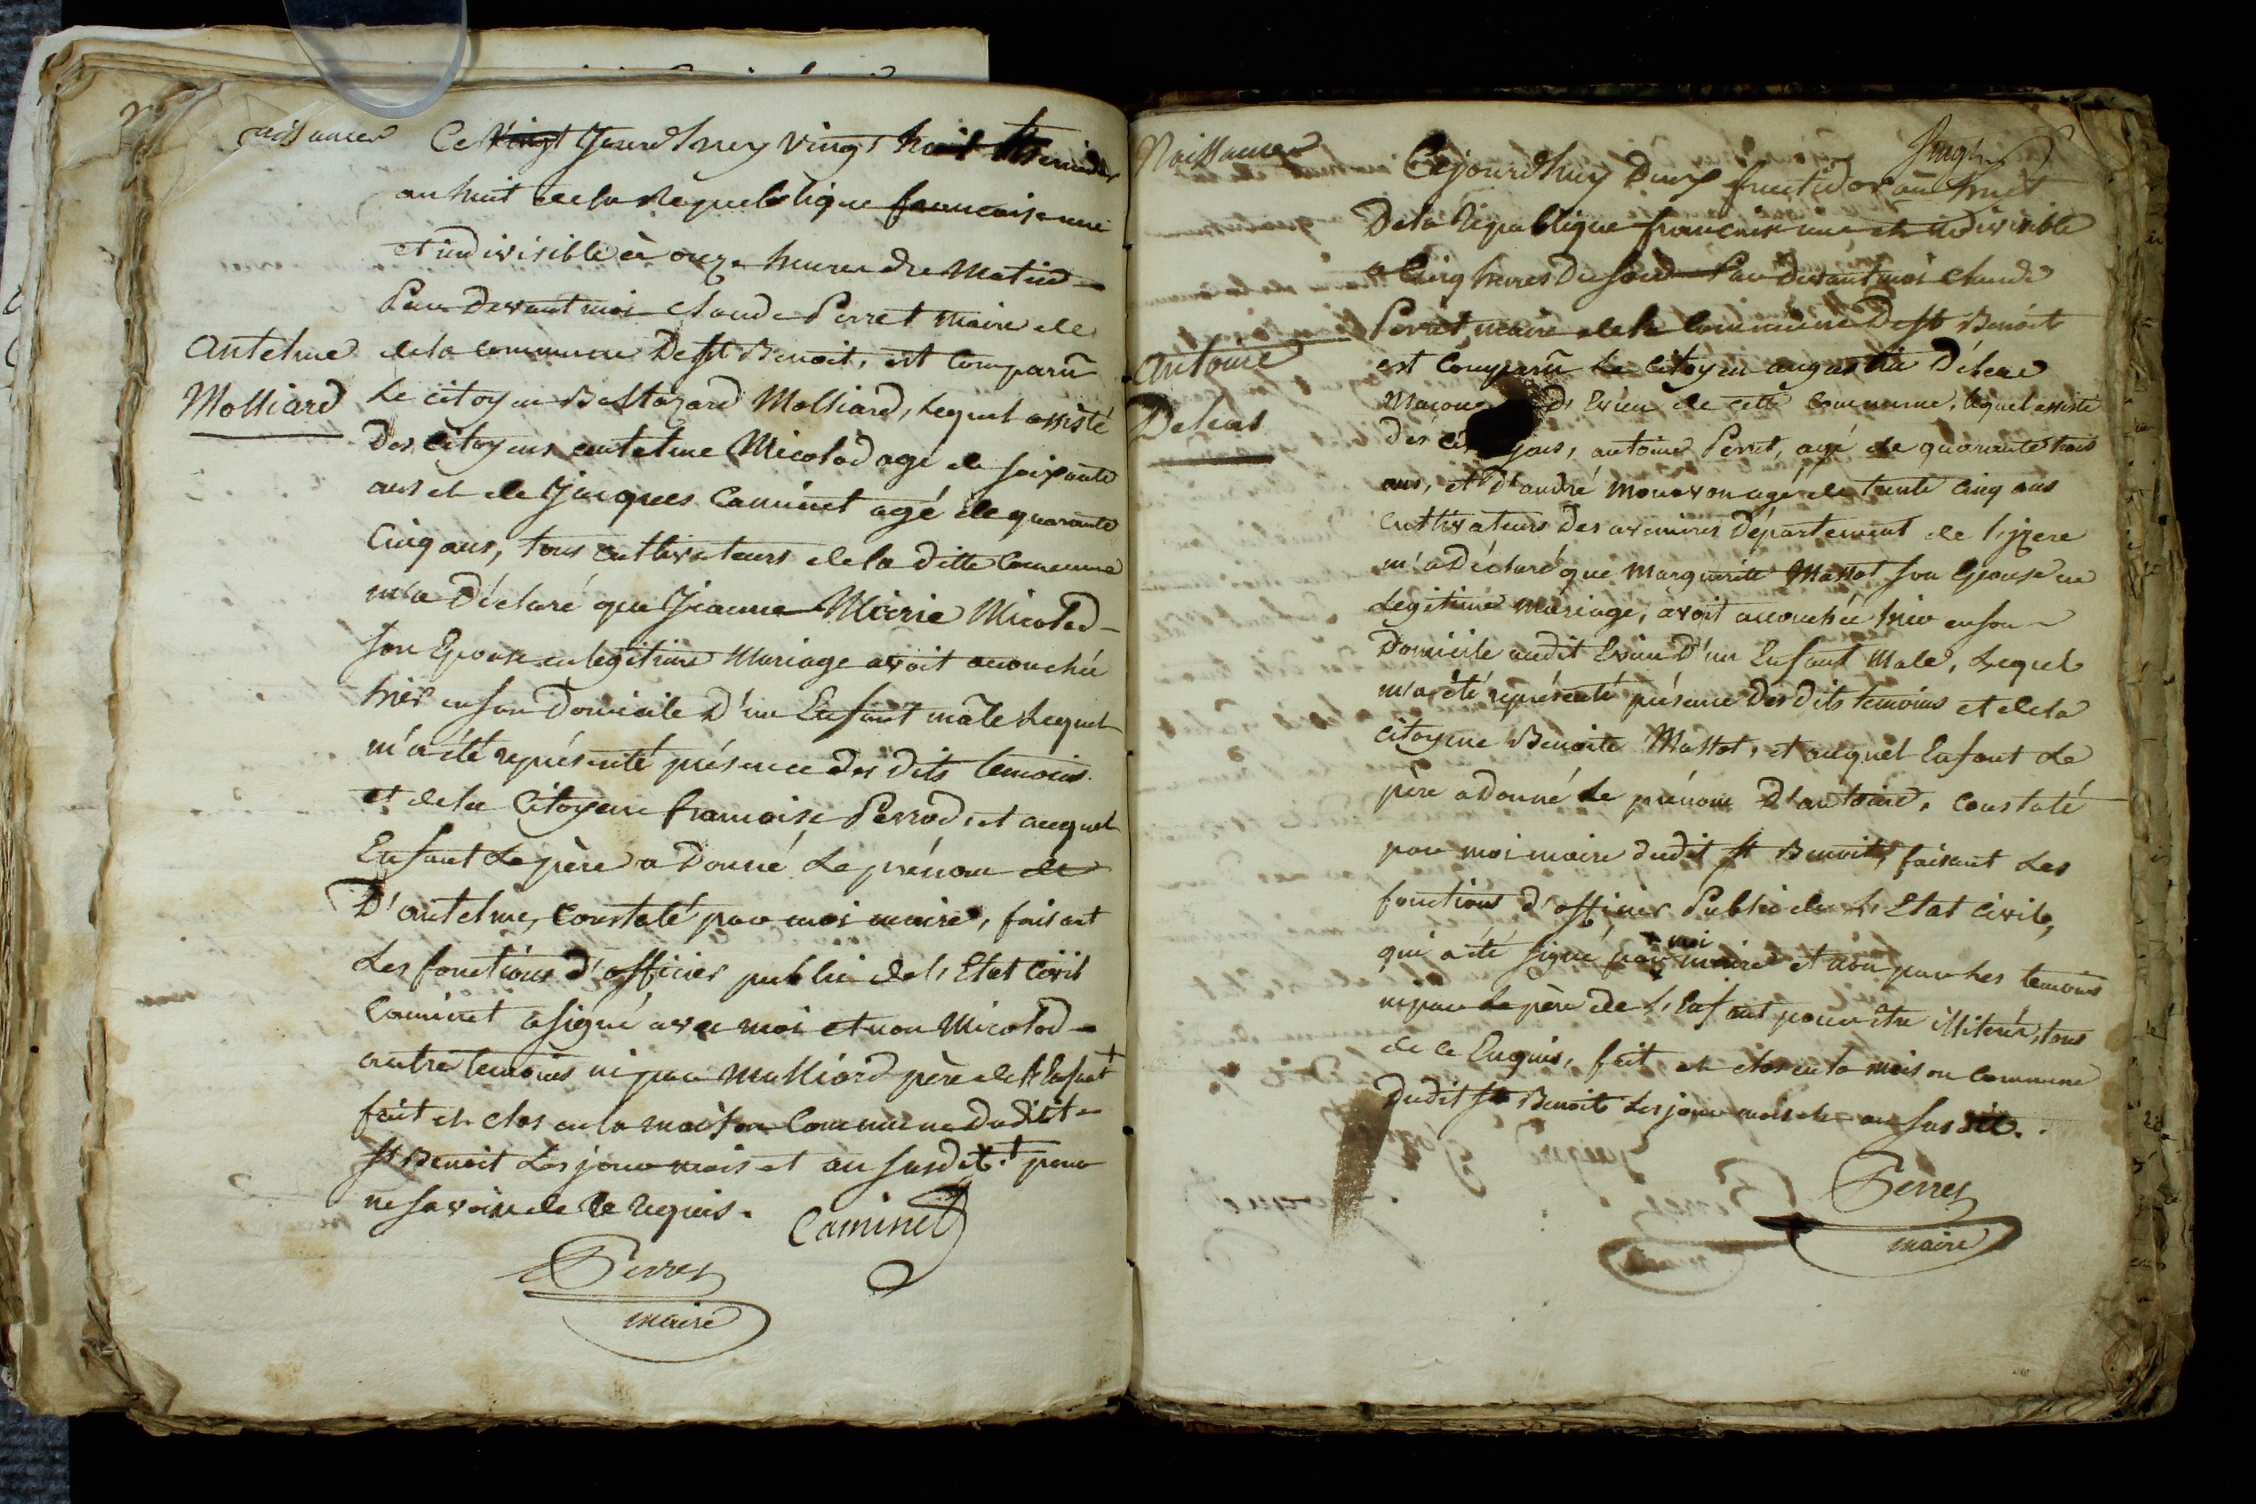 naissances
Ce vingt Jourd'huy vingt huit thermidor
an huit de la Republique francaise une
et indivisible à onze heures du Matin
Par devant moi Claude Perret maire de
Antelme
Molliard
de la commune De St Benoit, est comparû
Le citoyen Baltazard Molliard, Lequel assisté
Des citoyens antelme Micolod agé de soixante
ans et de Jacques Caminet agé de quarante
Cinq ans, tous cultivateurs de la ditte commune
m'a Déclaré que Jeanne Marie Micolod
son Epouse en legitime Mariage avoit accouchée
hier en son Domicile D'un Enfant mâle Lequel
m'a été représenté présence des dits temoins
et de la Citoyene francoise Perrod, et auquel
Enfant Le père a Donné Le prénom de
D'antelme, constaté par moi maire, faisant
Les fonctions d'officier public de l'Etat Civil
Caminet a signé avec moi et non Micolod
autre temoins ni par Molliard père de l'Enfant
fait et clos en la maison Commune Dudit
St Benoit Les jour mois et an susdit. + pour
ne savoir de ce requis.
Caminet
Perret
maire
Naissances
Cejourd'huy Deux fructidor an huit
De la République francaise une et indivisible
a Cinq heures Du soir Par devant moi Claude
Perret, maire de la Commune De St Benoit
Antoine
Deleas
est comparû Le citoyen augustin Déleas
Macon D'Evieu de cette Commune, lequel assisté
des citoyens, antoine Perret, agé de quarante trois
ans, et D'andré Monavon agé de trente cinq ans
cultivateurs des avenires Département de l'izere
m'a Déclaré que Marguerite Massot son Epouse en
Legitime Mariage, avoit accouchée hier en son
Domicile audit Evieu D'un Enfant Male, Lequel
m'a été représenté présence Des dits temoins et de la
citoyene Benoite Massot, et auquel Enfant Le
père a Donné Le prénom D'antoine, constaté
par moi maire dudit St Benoit, faisant Les
fonctions d'officier Public de L'Etat Civil,
qui a été signé par moi maire et non par Les temoins
ni par Le père de L'Enfant pour être illiterés, tous
de ce Enquis, fait et clos en la maison commune
Dudit St Benoit Les jour mois et an susdit.
Perret
maire